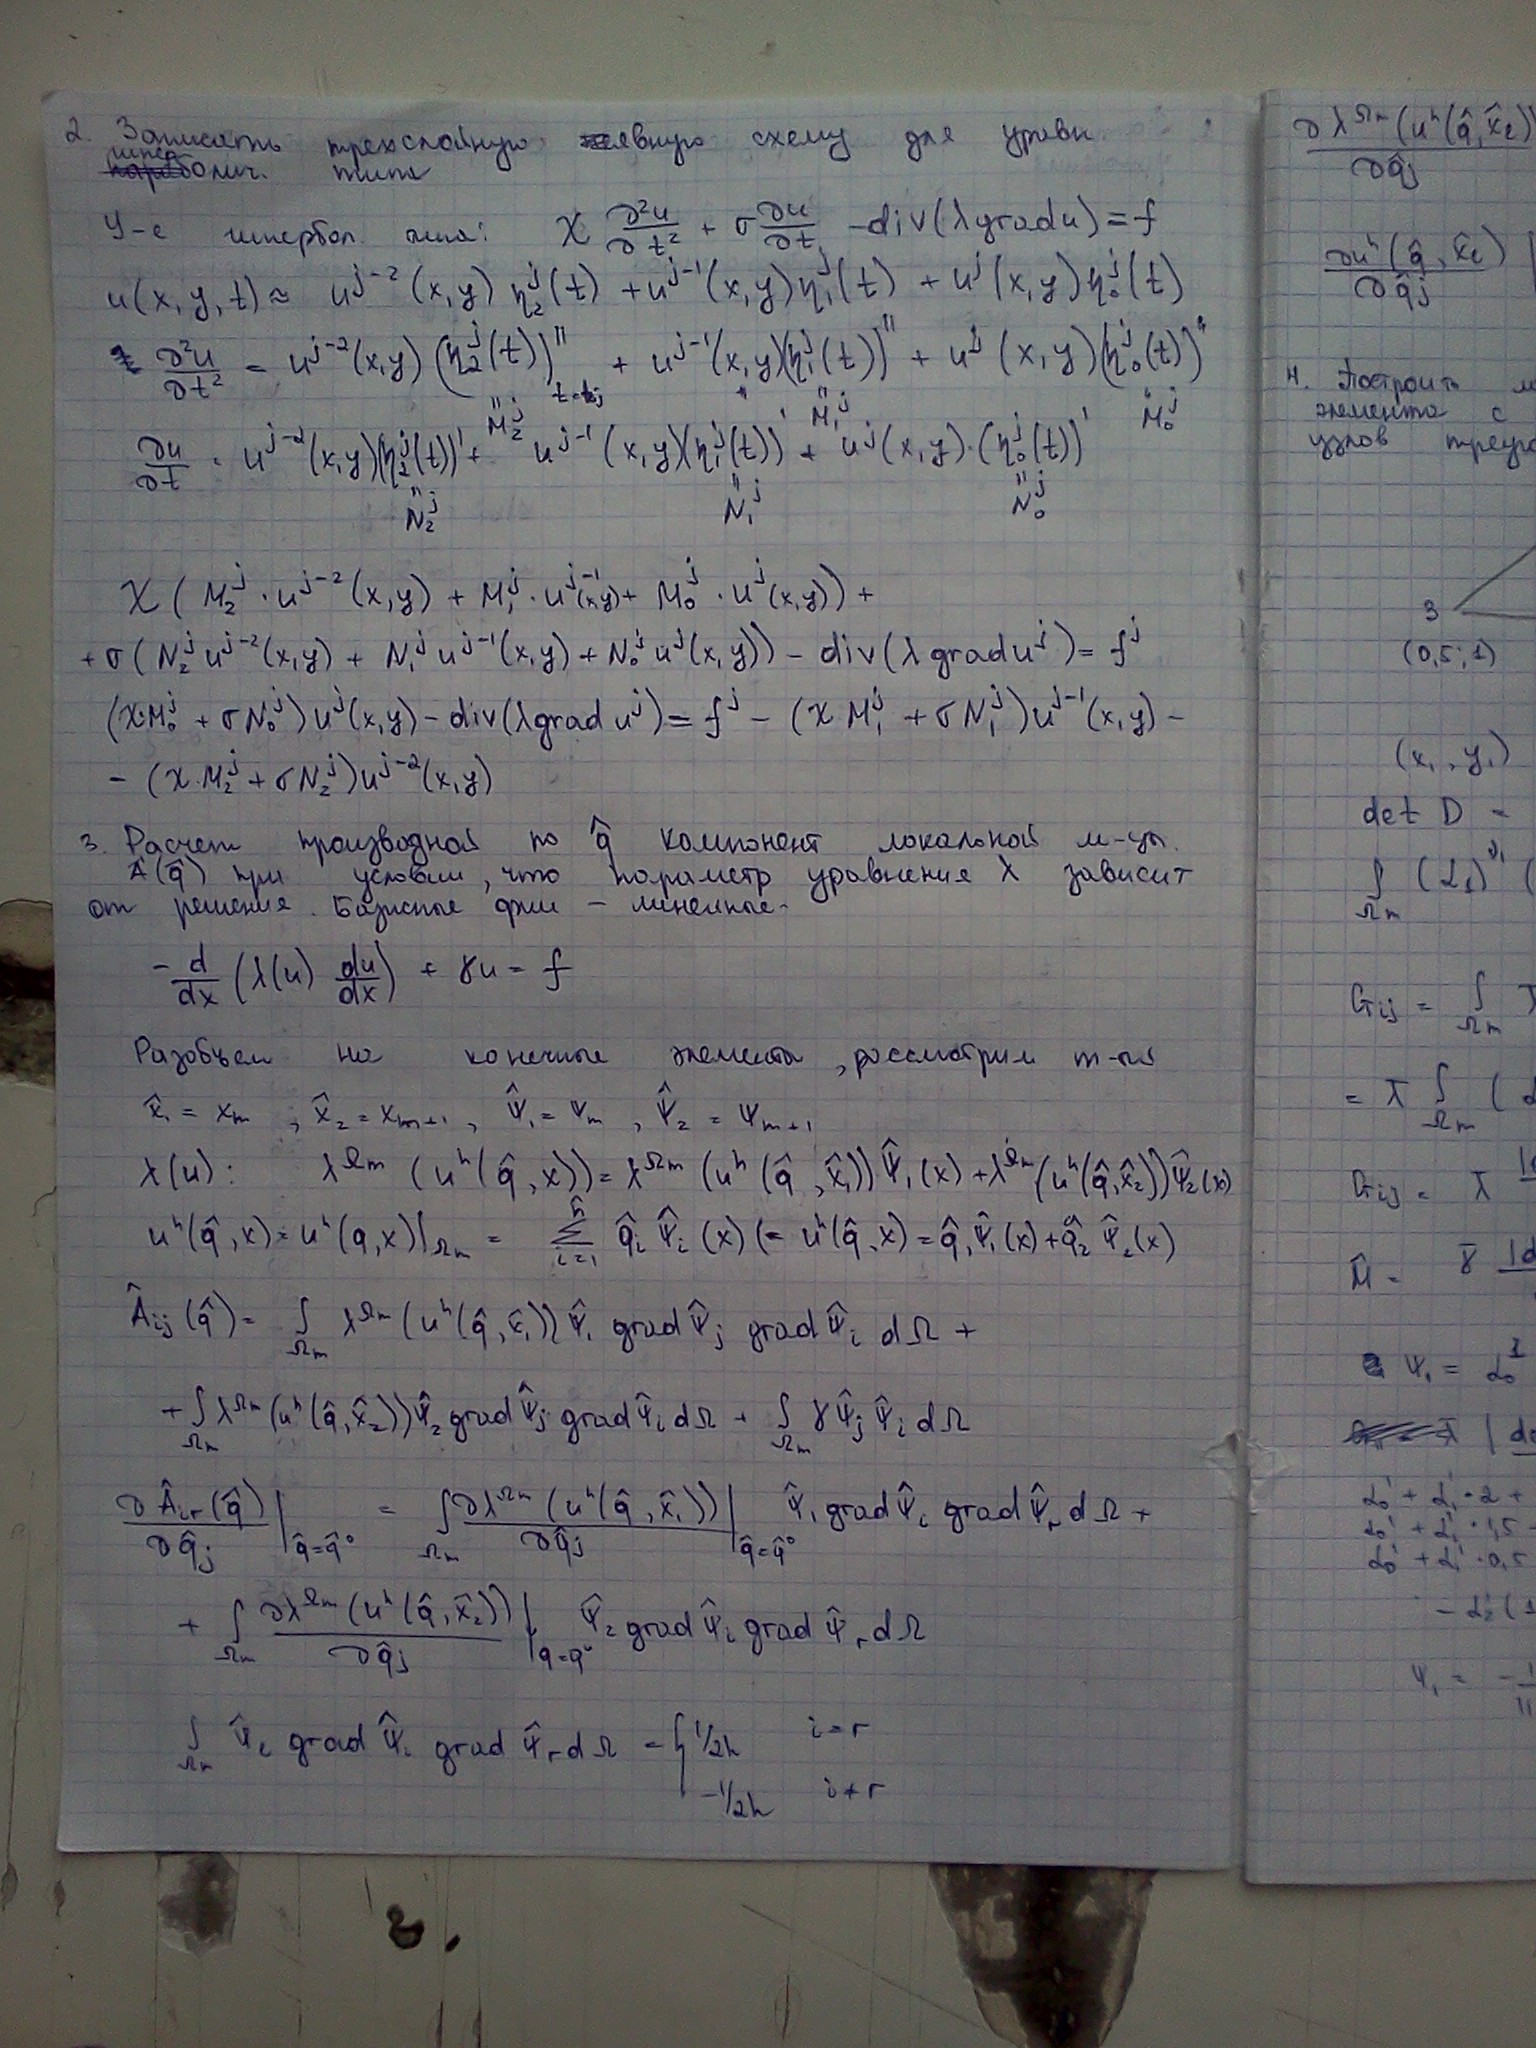 2. Записать трехслойную неявную схему для уравн
гипер
болич. типа
У-е гипербол. типа: χ ∂²u/∂t² + σ ∂u/∂t - div(λ grad u) = f
u(x,y,t) ≈ u^{j-2}(x,y) η₂^j(t) + u^{j-1}(x,y) η₁^j(t) + u^j(x,y) η₀^j(t)
∂²u/∂t² = u^{j-2}(x,y) (η₂^j(t))'' + u^{j-1}(x,y) (η₁^j(t))'' + u^j(x,y) (η₀^j(t))''
t=t_j
" M₂^j " M₁^j " M₀^j
∂u/∂t = u^{j-2}(x,y) (η₂^j(t))' + u^{j-1}(x,y) (η₁^j(t))' + u^j(x,y)·(η₀^j(t))'
" N₂^j " N₁^j " N₀^j
χ (M₂^j · u^{j-2}(x,y) + M₁^j · u^{j-1}(x,y) + M₀^j · u^j(x,y)) +
+ σ (N₂^j u^{j-2}(x,y) + N₁^j u^{j-1}(x,y) + N₀^j u^j(x,y)) - div(λ grad u^j) = f^j
(χ·M₀^j + σN₀^j) u^j(x,y) - div(λ grad u^j) = f^j - (χ·M₁^j + σN₁^j) u^{j-1}(x,y) -
- (χ·M₂^j + σN₂^j) u^{j-2}(x,y)
3. Расчет производной по q̂ компонент локальной м-цы
Â(q̂) при условии, что параметр уравнения λ зависит
от решения. Базисные фции - линейные.
- d/dx (λ(u) du/dx) + γu = f
Разобьем на конечные элементы, рассмотрим m-ый
x̂₁ = x_m , x̂₂ = x_{m+1} , ψ̂₁ = ψ_m , ψ̂₂ = ψ_{m+1}
λ(u): λ^{Ωm} (u^h(q̂,x)) = λ^{Ωm} (u^h(q̂,x̂₁)) ψ̂₁(x) + λ^{Ωm} (u^h(q̂,x̂₂)) ψ̂₂(x)
u^h(q̂,x) = u^h(q,x)|_{Ωm} = Σ_{i=1}^{n̂} q̂_i ψ̂_i(x) (= u^h(q̂,x) = q̂₁ψ̂₁(x) + q̂₂ψ̂₂(x)
Â_ij(q̂) = ∫_{Ωm} λ^{Ωm} (u^h(q̂,x̂₁)) ψ̂₁ grad ψ̂_j grad ψ̂_i dΩ +
+ ∫_{Ωm} λ^{Ωm} (u^h(q̂,x̂₂)) ψ̂₂ grad ψ̂_j grad ψ̂_i dΩ + ∫_{Ωm} γ ψ̂_j ψ̂_i dΩ
∂Â_ir(q̂)/∂q̂_j |_{q̂=q̂⁰} = ∫_{Ωm} ∂λ^{Ωm} (u^h(q̂,x̂₁))/∂q̂_j |_{q̂=q̂⁰} ψ̂₁ grad ψ̂_i grad ψ̂_r dΩ +
+ ∫_{Ωm} ∂λ^{Ωm} (u^h(q̂,x̂₂))/∂q̂_j |_{q=q⁰} ψ̂₂ grad ψ̂_i grad ψ̂_r dΩ
∫_{Ωm} ψ̂_l grad ψ̂_i grad ψ̂_r dΩ = { 1/2h i = r
-1/2h i ≠ r
∂λ^{Ωm} (u^h(q̂,x̂_l))/∂q̂_j
∂u^h(q̂,x̂_l)/∂q̂_j
4. Построить
элемента с
узлов
3
(0,5; 1)
(x₁, y₁)
det D =
∫_{Ωm} (L₁)^{ν₁} (
G_ij = ∫_{Ωm} λ̄
= λ̄ ∫_{Ωm} (
G_ij = λ̄
M̂ = γ̄
ψ₁ = α₀¹
α₀¹ + α₁¹·2 +
α₀¹ + α₁¹·1,5
α₀¹ + α₁¹·0,5
ψ₁ =